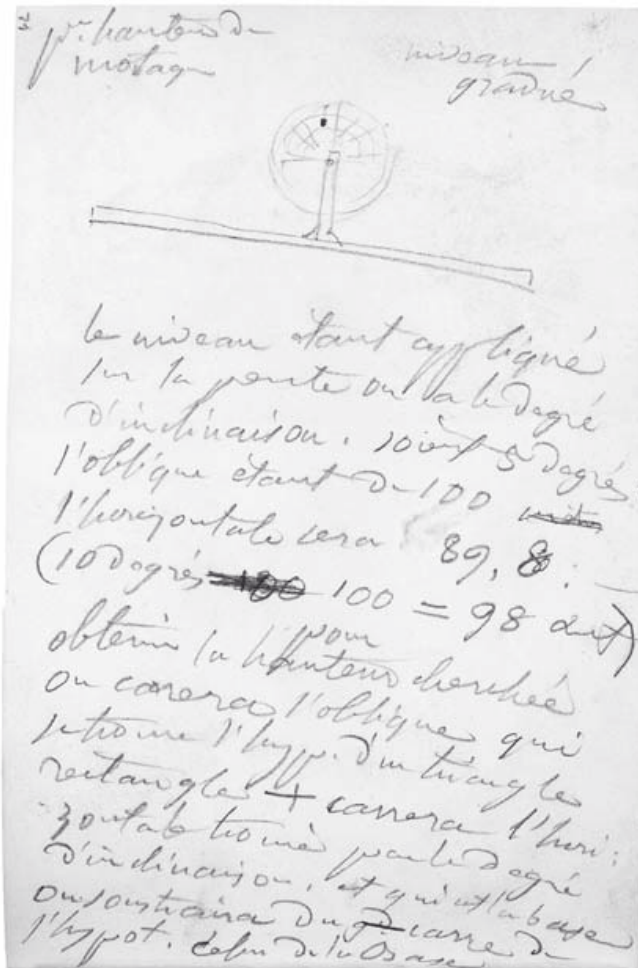 pr. hauteur de
motagn
niveau
gradué
le niveau étant appliqué
sur la pente on a le degré
d'inclinaison. soient 5 degrés
l'oblique étant de 100
l'horizontale sera 89,8:
(10 degrés 100 = 98 et)
pour
obtenir la hauteur cherchée
on carrera l'oblique qui
se trouve l'hyp. d'un triangle
rectangle + carrera l'hori:
zontale trouvé par le degré
d'inclinaison, et qui est la base
on soustraira du carré de
l'hypot. celui de la base